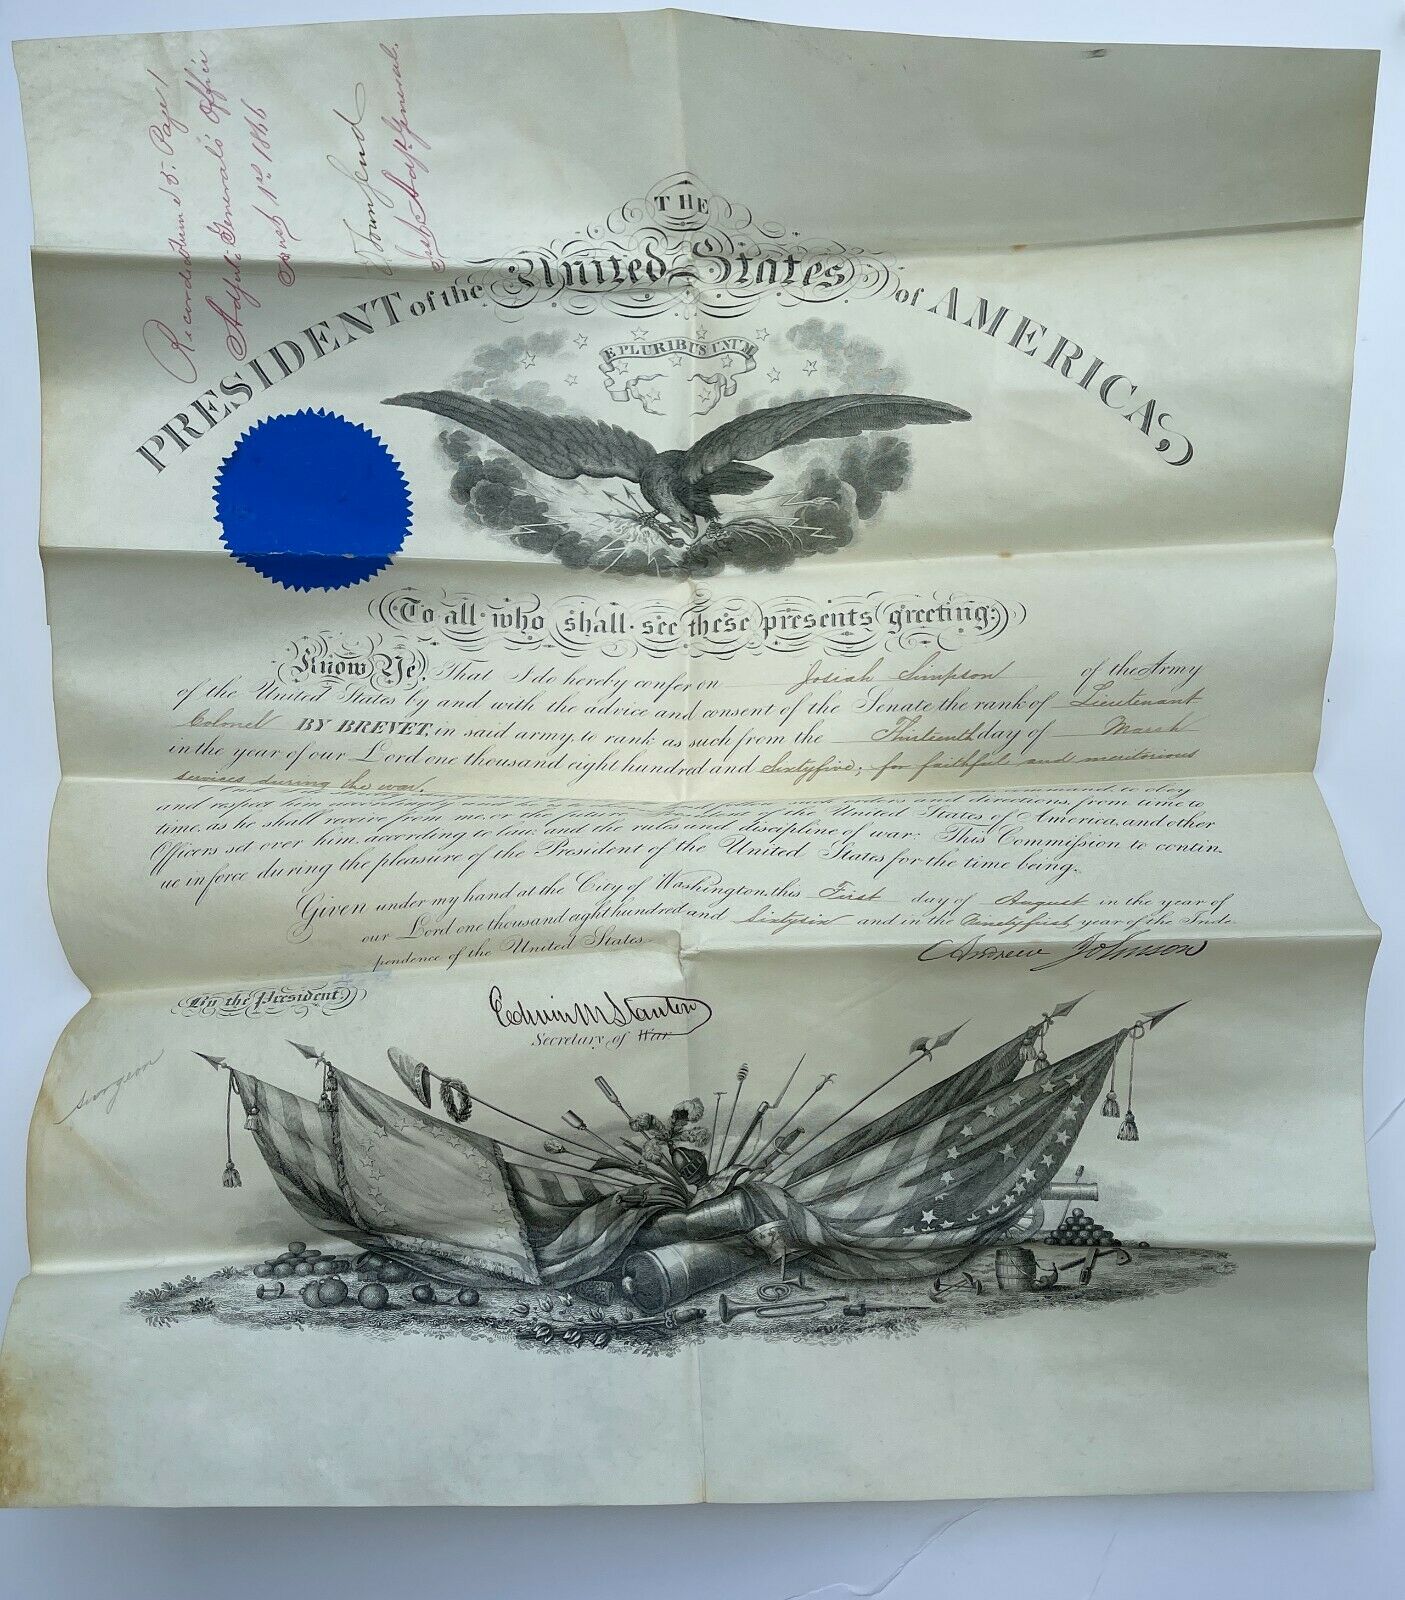 Recorded Volume 5. Page 1
Adjut: General's Office
August 1st 1866
Townsend
Asst. Adjt. General.
THE
PRESIDENT of the United States of AMERICA,
E PLURIBUS UNUM
To all who shall see these presents greeting:
Know Ye, That I do hereby confer on Josiah Simpson of the Army
of the United States by and with the advice and consent of the Senate the rank of Lieutenant
Colonel BY BREVET, in said army, to rank as such from the Thirteenth day of March
in the year of our Lord one thousand eight hundred and Sixty five, for faithful and meritorious
services during the war.
command, to obey
and respect him accordingly and he is to observe and follow such orders and directions, from time to
time, as he shall receive from me, or the future President of the United States of America, and other
Officers set over him, according to law, and the rules and discipline of war. This Commission to contin-
ue in force during the pleasure of the President of the United States for the time being.
Given under my hand at the City of Washington, this First day of August in the year of
our Lord one thousand eight hundred and Sixty six and in the Ninety first year of the Inde-
pendence of the United States.
Andrew Johnson
By the President:
Edwin M Stanton
Secretary of War
Surgeon